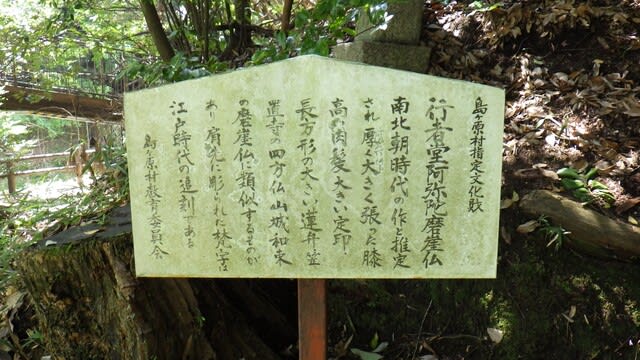 島ヶ原村指定文化財
行者堂阿弥陀磨崖仏
南北朝時代の作と推定
され厚く大きく張った膝
高い肉髪大きい定印
長方形の大きい蓮弁笠
置寺の四方仏山城和束
の磨崖仏に類似するものが
あり肩先に彫られた梵字は
江戸時代の追刻である
島ヶ原村教育委員会